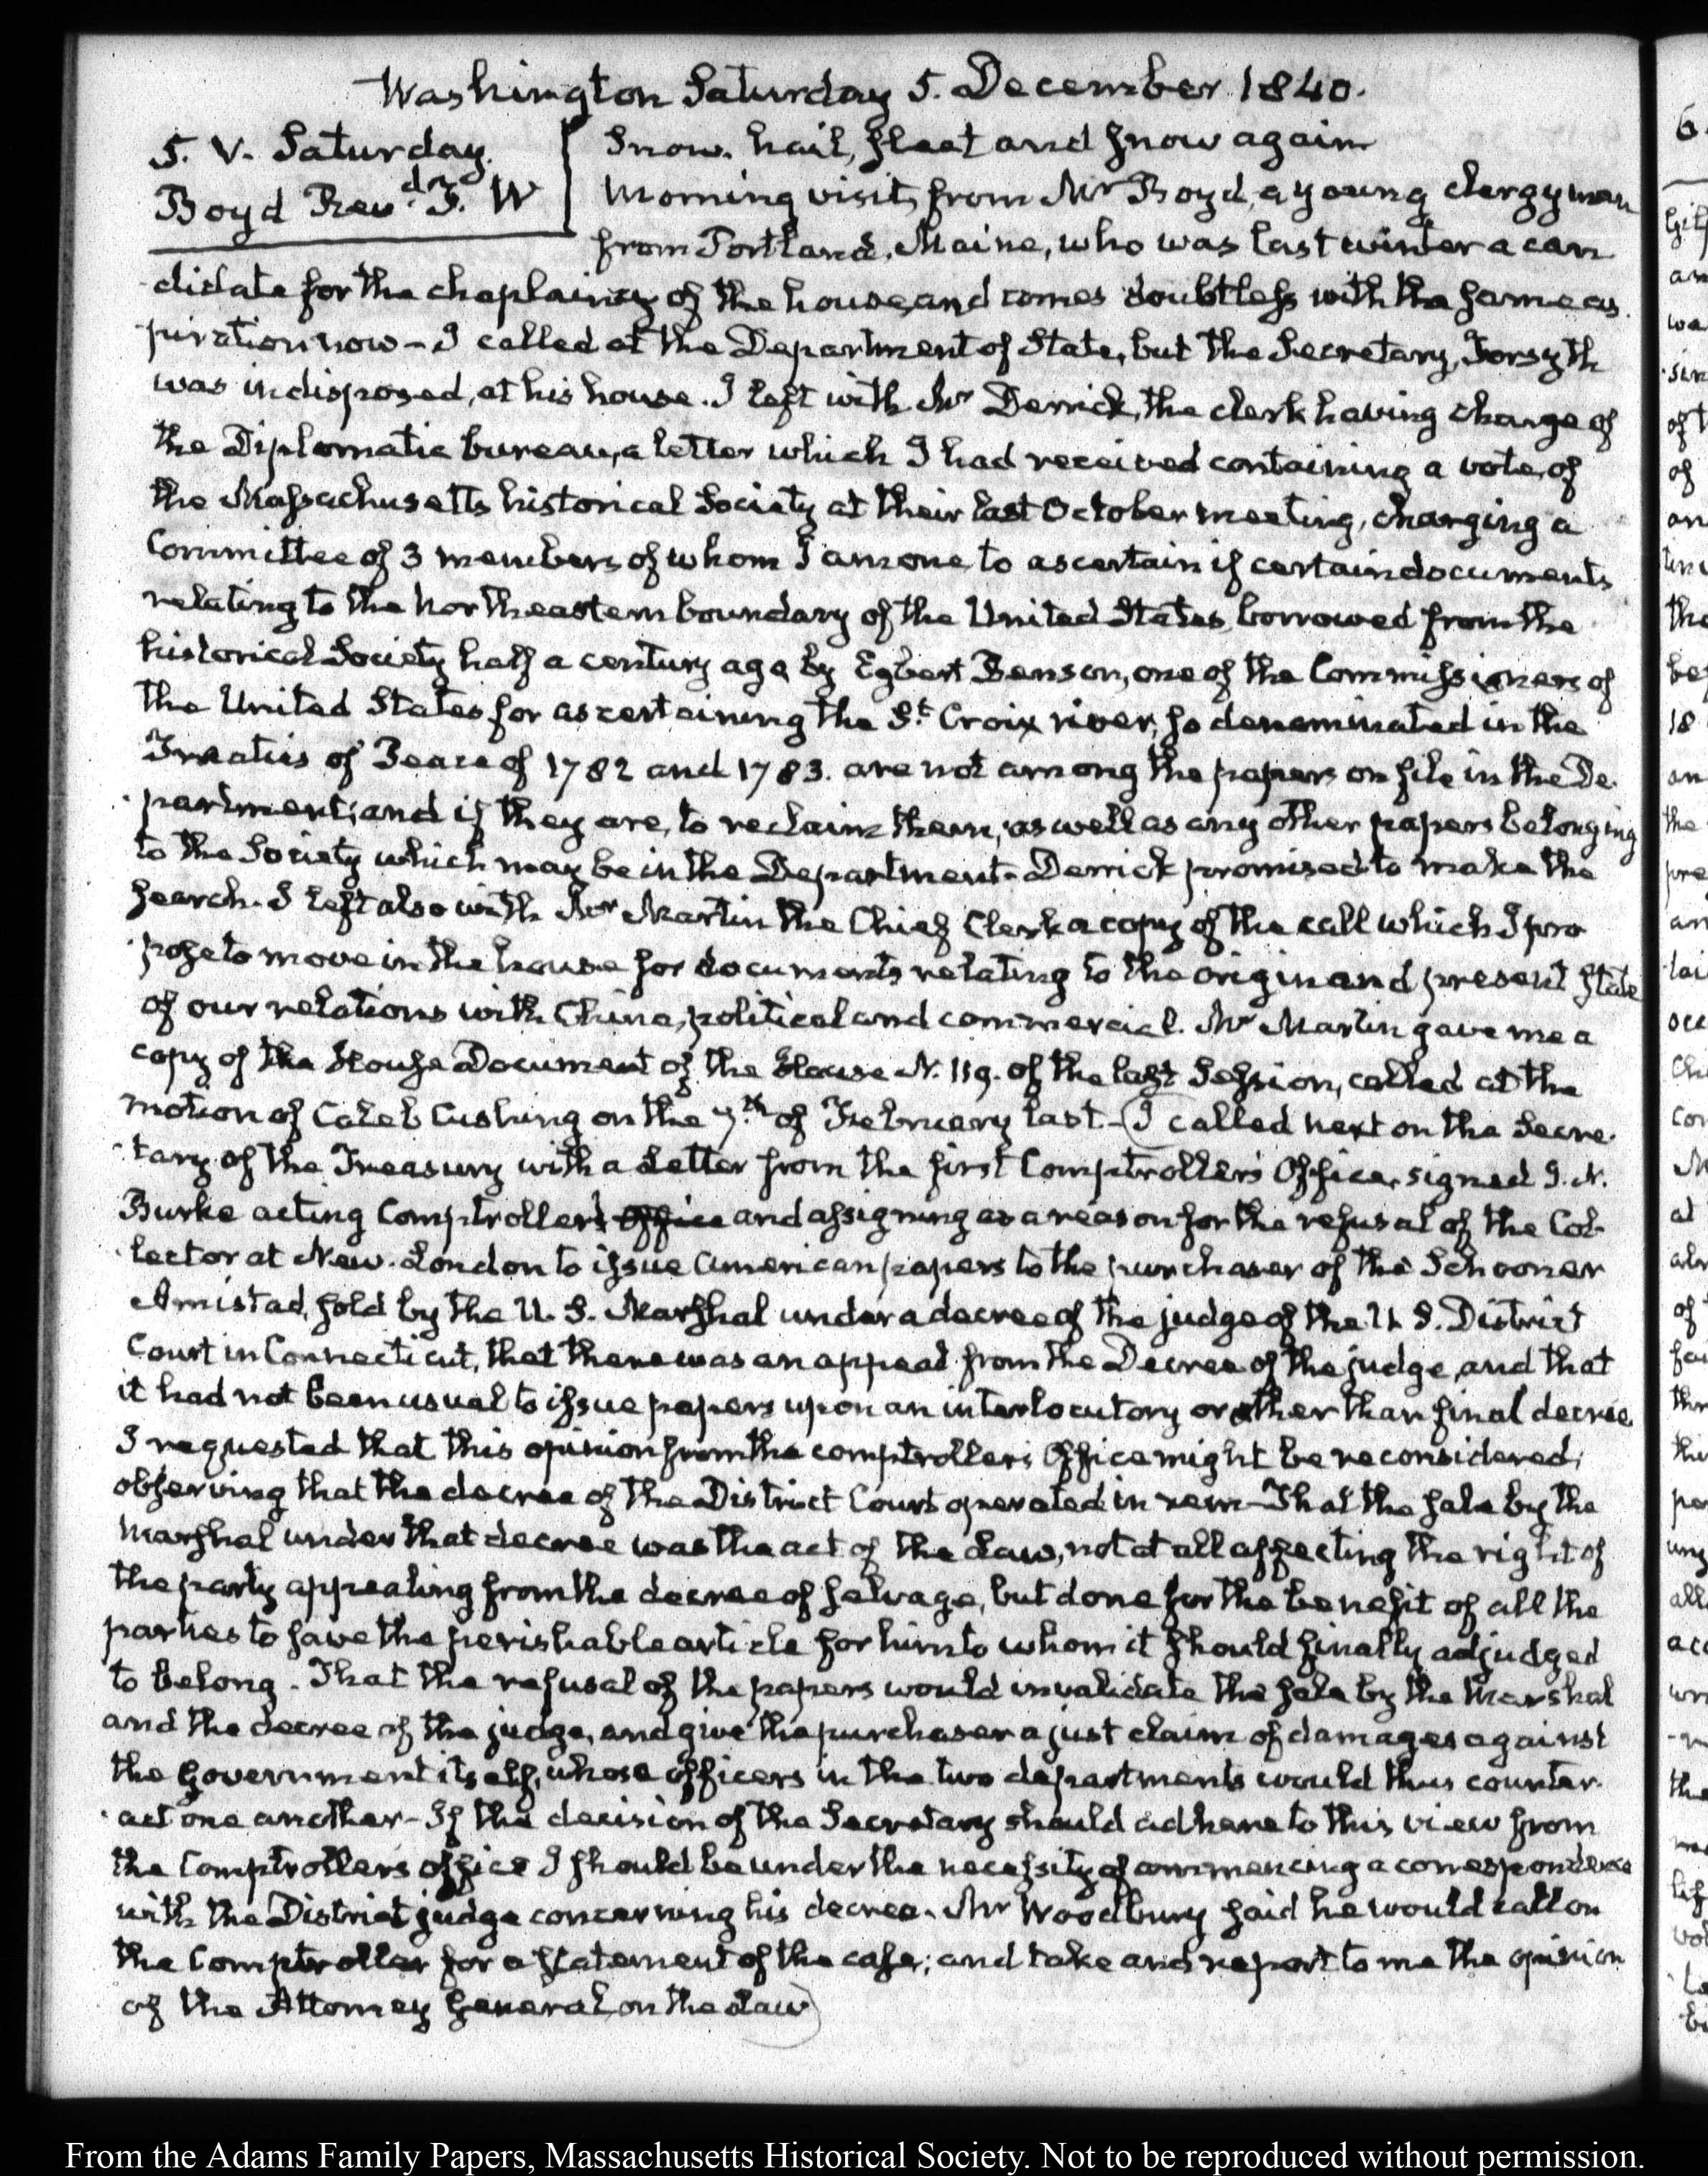 Washington Saturday 5. December 1840.
5. V. Saturday.
Boyd Revd. F. W
Snow, hail, sleet and snow again
Morning visit, from Mr Boyd, a young clergyman
from Portland, Maine, who was last winter a can
didate for the chaplaincy of the house, and comes doubtless with the same as
piration now – I called at the Department of State, but the Secretary, Forsyth
was indisposed, at his house. I left with Mr Derrick, the clerk having charge of
the Diplomatic bureau, a letter which I had received containing a vote, of
the Massachusetts historical Society at their last October meeting, charging a
Committee of 3 members of whom I am one to ascertain if certain documents
relating to the Northeastern boundary of the United States, borrowed from the
historical Society half a century ago by Egbert Benson, one of the Commissioners of
the United States for ascertaining the St. Croix river, so denominated in the
Treaties of Peace of 1782 and 1783. are not among the papers on file in the De
partment; and if they are, to reclaim them, as well as any other papers belonging
to the Society which may be in the Department – Derrick promised to make the
search. I left also with Mr Martin the Chief Clerk a copy of the call which I pro
pose to move in the house for documents relating to the origin and present state
of our relations with China, political and commercial. Mr Martin gave me a
copy of the House Document of the House N. 119. of the last Session, called at the
motion of Caleb Cushing on the 7th. of February last. – (I called next on the Secre
tary of the Treasury with a Letter from the first Comptroller's Office, signed J. N.
Burke acting Comptrollers Office and assigning as a reason for the refusal of the Col
lector at New-London to issue American papers to the purchaser of the Schooner
Amistad, sold by the U. S. Marshal under a decree of the judge of the U. S. District
Court in Connecticut, that there was an appeal from the Decree of the judge, and that
it had not been usual to issue papers upon an interlocutory or other than final decree
I requested that this opinion from the comptrollers Office might be reconsidered;
observing that the decree of the District Court operated in rem – That the sale by the
Marshal under that decree was the act of the Law, not at all affecting the right of
the party appealing from the decree of salvage, but done for the benefit of all the
parties to save the perishable article for him to whom it should finally adjudged
to belong – That the refusal of the papers would invalidate the sale by the Marshal
and the decree of the judge, and give the purchaser a just claim of damages against
the Government itself, whose officers in the two departments would thus counter
act one another – If the decision of the Secretary should adhere to this view from
the Comptrollers office I should be under the necessity of commencing a correspondence
with the District judge concerning his decree. Mr Woodbury said he would call on
the Comptroller for a statement of the case; and take and report to me the opinion
of the Attorney General on the Law)
From the Adams Family Papers, Massachusetts Historical Society. Not to be reproduced without permission.